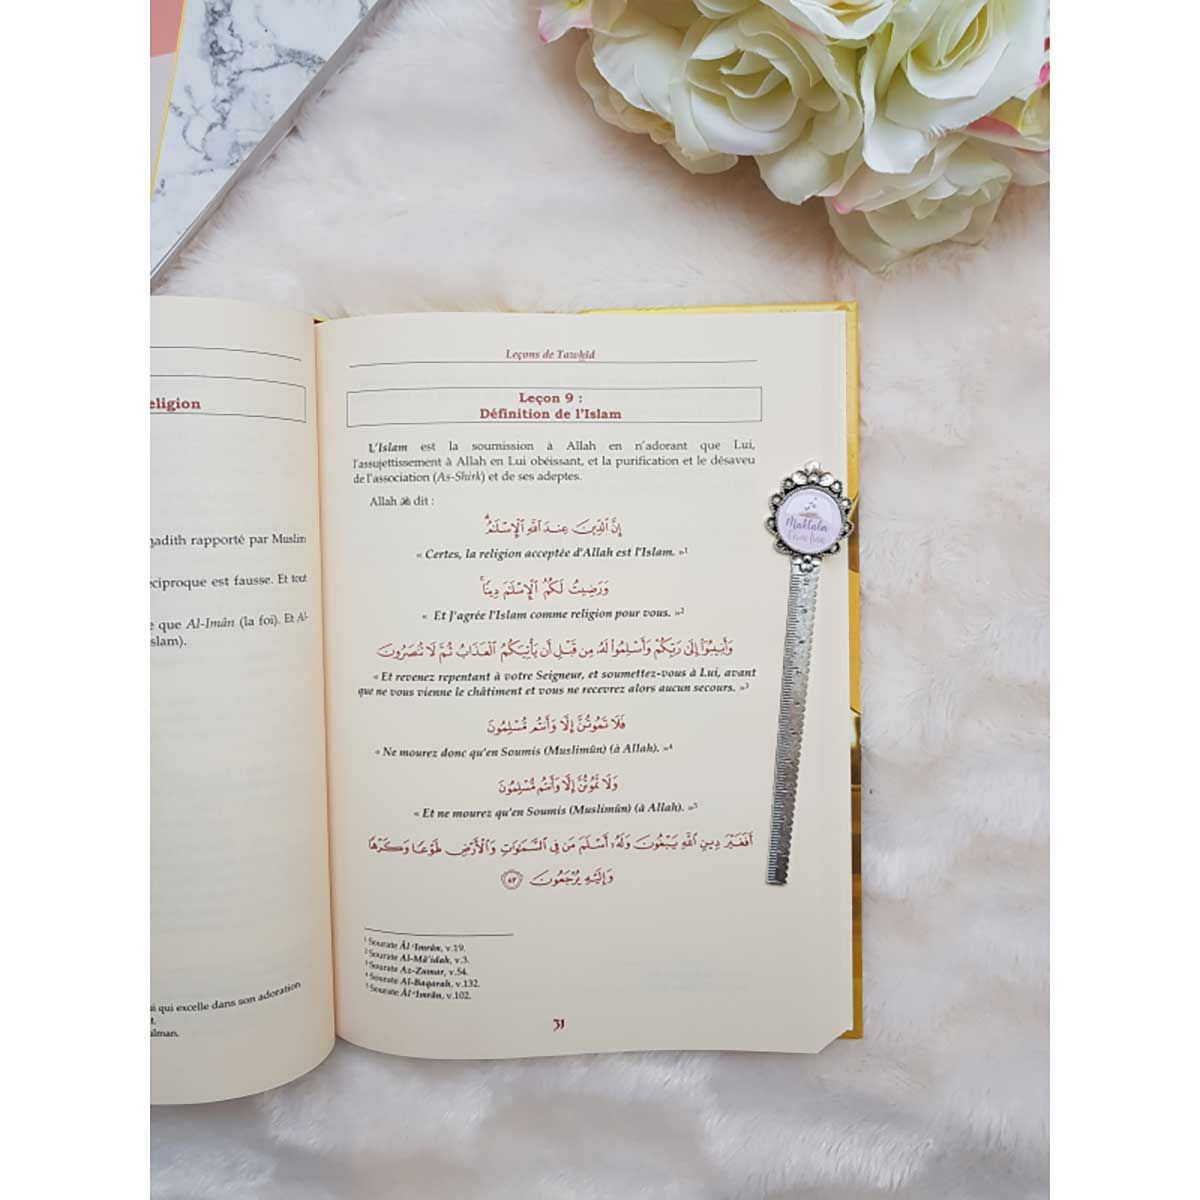 eligion
hadith rapporté par Muslim
éciproque est fausse. Et tout
e que Al-Imân (la foi). Et Al-
slam).
ui qui excelle dans son adoration
t.
ulman.
Leçons de Tawhîd
Leçon 9 :
Définition de l'Islam
L'Islam est la soumission à Allah en n'adorant que Lui,
l'assujettissement à Allah en Lui obéissant, et la purification et le désaveu
de l'association (As-Shirk) et de ses adeptes.
Allah ﷻ dit :
إِنَّ ٱلدِّينَ عِندَ ٱللَّهِ ٱلْإِسْلَـٰمُ ۗ
« Certes, la religion acceptée d'Allah est l'Islam. »¹
وَرَضِيتُ لَكُمُ ٱلْإِسْلَـٰمَ دِينًا ۚ
« Et J'agrée l'Islam comme religion pour vous. »²
وَأَنِيبُوٓا۟ إِلَىٰ رَبِّكُمْ وَأَسْلِمُوا۟ لَهُۥ مِن قَبْلِ أَن يَأْتِيَكُمُ ٱلْعَذَابُ ثُمَّ لَا تُنصَرُونَ
« Et revenez repentant à votre Seigneur, et soumettez-vous à Lui, avant
que ne vous vienne le châtiment et vous ne recevrez alors aucun secours. »³
فَلَا تَمُوتُنَّ إِلَّا وَأَنتُم مُّسْلِمُونَ
« Ne mourez donc qu'en Soumis (Muslimûn) (à Allah). »⁴
وَلَا تَمُوتُنَّ إِلَّا وَأَنتُم مُّسْلِمُونَ
« Et ne mourez qu'en Soumis (Muslimûn) (à Allah). »⁵
أَفَغَيْرَ دِينِ ٱللَّهِ يَبْغُونَ وَلَهُۥٓ أَسْلَمَ مَن فِى ٱلسَّمَـٰوَٰتِ وَٱلْأَرْضِ طَوْعًا وَكَرْهًا
وَإِلَيْهِ يُرْجَعُونَ ٨٣
¹ Sourate Âl 'Imrân, v.19.
² Sourate Al-Mâ'idah, v.3.
³ Sourate Az-Zumar, v.54.
⁴ Sourate Al-Baqarah, v.132.
⁵ Sourate Âl 'Imrân, v.102.
31
Maktaba